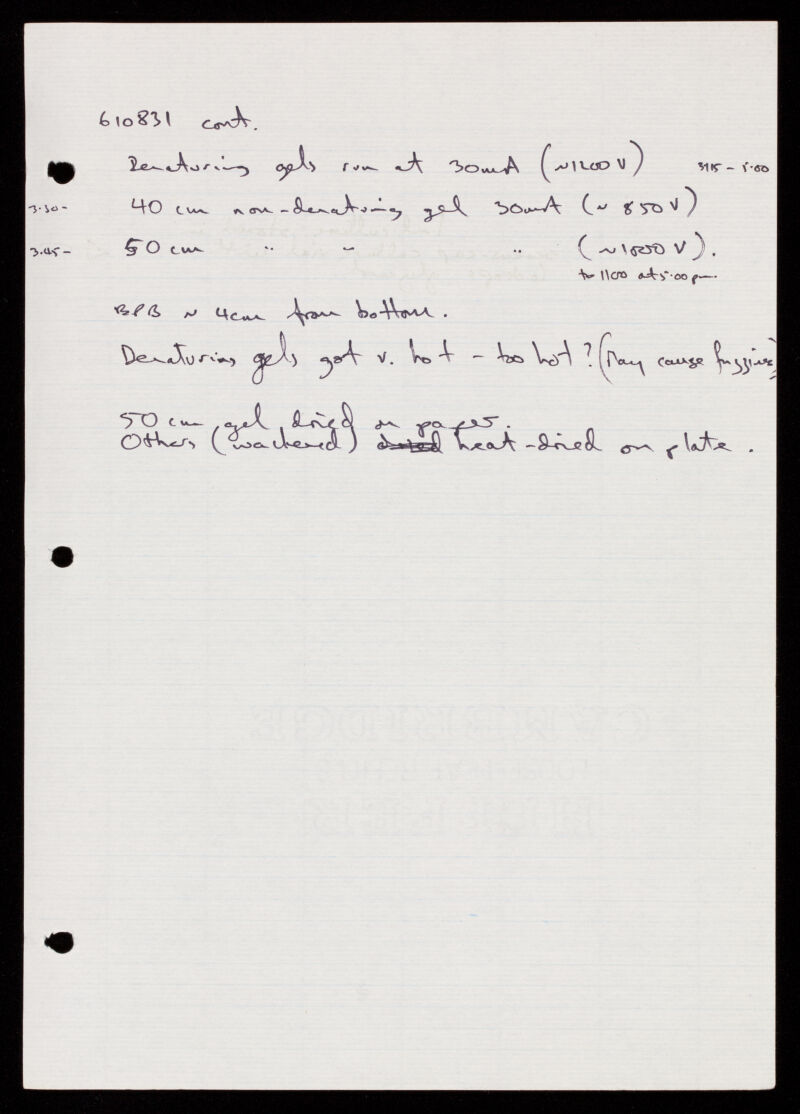 610831 cont.
Denaturing gels run at 30mA (~1200 V) 3.15 - 5.00
3.30 - 40 cm non-denaturing gel 30mA (~ 850 V)
3.45 - 50 cm " " " (~1000 V).
to 1100 at 5.00 pm.
BPB ~ 4cm from bottom.
Denaturing gels got v. hot - too hot? (May cause fuzziness)
50 cm gel dried on paper.
Others (wackered) dried heat-dried on plate.
CAMBRIDGE